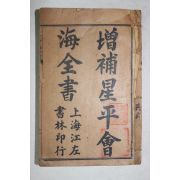 增補星平會
海全書
上海江左
書林印行